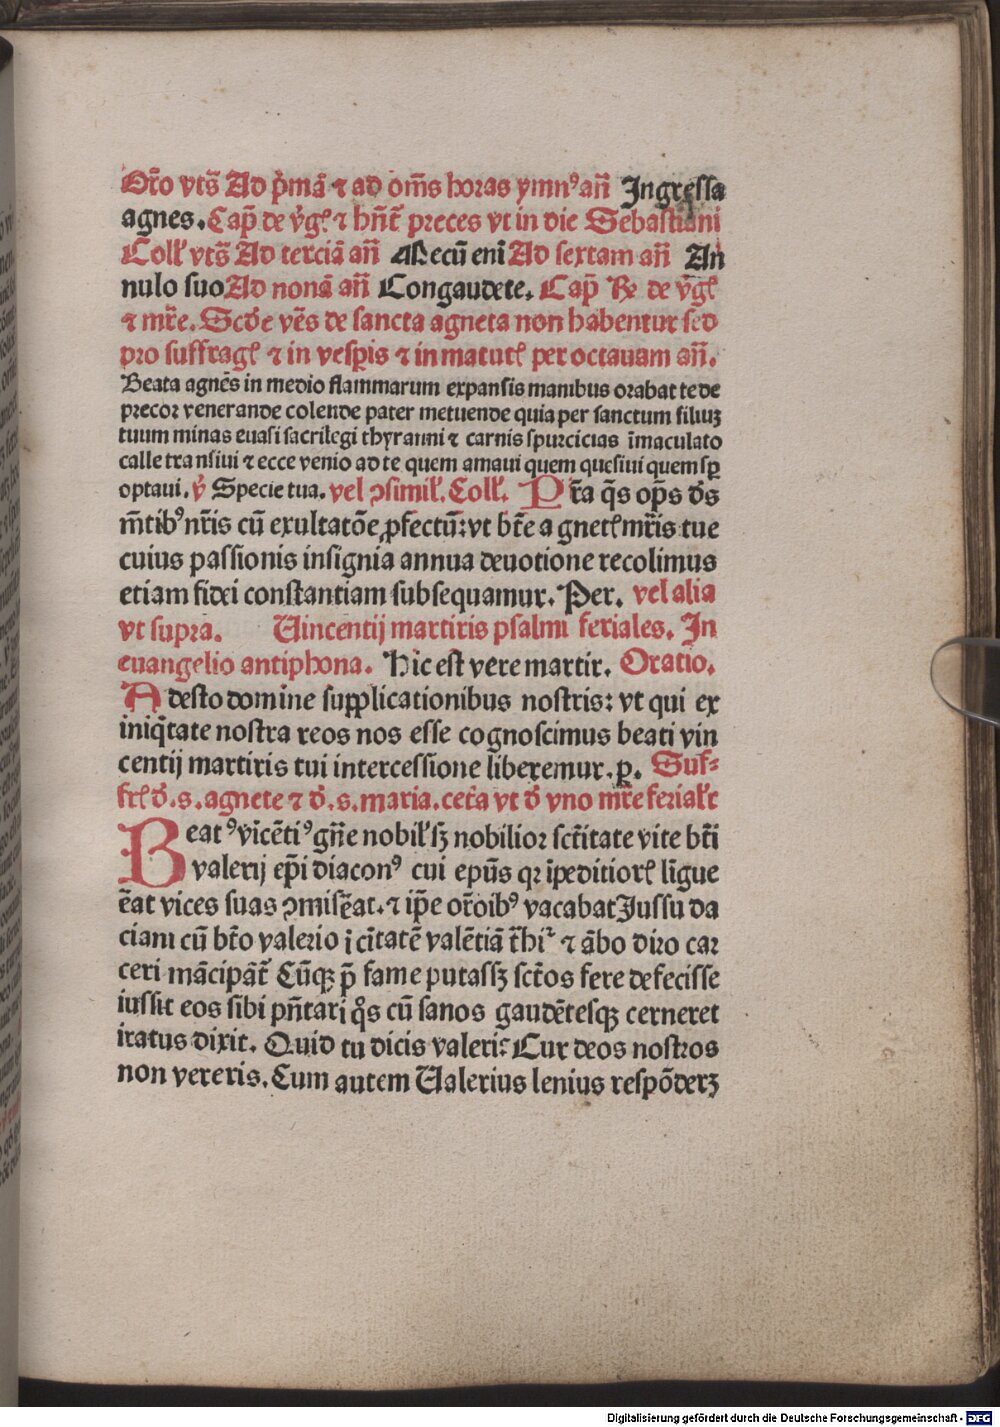 Or̃o vts̃ Ad p̃mã ⁊ ad om̃s horas ymnꝰ añ Jngressa
agnes. Cap̃ de v̾gꝭ ⁊ hñt̃ preces vt in die Sebastiani
Coll' vts̃ Ad terciã añ Mecũ enĩ Ad sextam añ An
nulo suo Ad nonã añ Congaudete. Cap̃ ℞ de v̾gꝭ
⁊ mr̃e. Scd̾e vẽs de sancta agneta non habentur sed
pro suffragꝭ ⁊ in vesp̲is ⁊ in matutꝭ per octauam añ.
Beata agnẽs in medio flammarum expansis manibus orabat te de
precor venerande colende pater metuende quia per sanctum filiuꝫ
tuum minas euasi sacrilegi thyranni ⁊ carnis spurcicias ĩmaculato
calle transiui ⁊ ecce venio ad te quem amaui quem quesiui quem sꝑ
optaui. ℣ Specie tua. vel ꝯsimil'. Coll'. Pr̃a q̃s op̃s ds̃
m̃tibꝰ nr̃is cũ exultatõe ꝓfectũ: vt bt̃e agnetꝭ mr̃is tue
cuius passionis insignia annua deuotione recolimus
etiam fidei constantiam subsequamur. Per. vel alia
vt supra. Uincentij martiris psalmi feriales. Jn
euangelio antiphona. Hic est vere martir. Oratio.
Adesto domine supplicationibus nostris: vt qui ex
iniq̃tate nostra reos nos esse cognoscimus beati vin
centij martiris tui intercessione liberemur. ꝑ. Suf⸗
frꝭ d̾. s. agnete ⁊ d̾. s. maria. cet̃a vt d̾ vno mr̃e ferial'r
Beatꝰ vicẽtiꝰ gñe nobil' sꝫ nobilior sct̃itate vite bt̃i
valerij ep̃i diaconꝰ cui epũs qr ĩpeditiorꝭ lĩgue
ẽat vices suas ꝯmisẽat. ⁊ ip̃e or̃oibꝰ vacabat Jussu da
ciani cũ bt̃o valerio ĩ cĩtatẽ valẽtiã t̃hiᷣ ⁊ ãbo diro car
ceri mãcipãt̃ Cũqꝫ p̃ fame putassꝫ sct̃os fere defecisse
iussit eos sibi pñtari q̊s cũ sanos gaudẽtesqꝫ cerneret
iratus dixit. Quid tu dicis valeri: Cur deos nostros
non vereris. Cum autem Ualerius lenius respõderꝫ
Digitalisierung gefördert durch die Deutsche Forschungsgemeinschaft - DFG